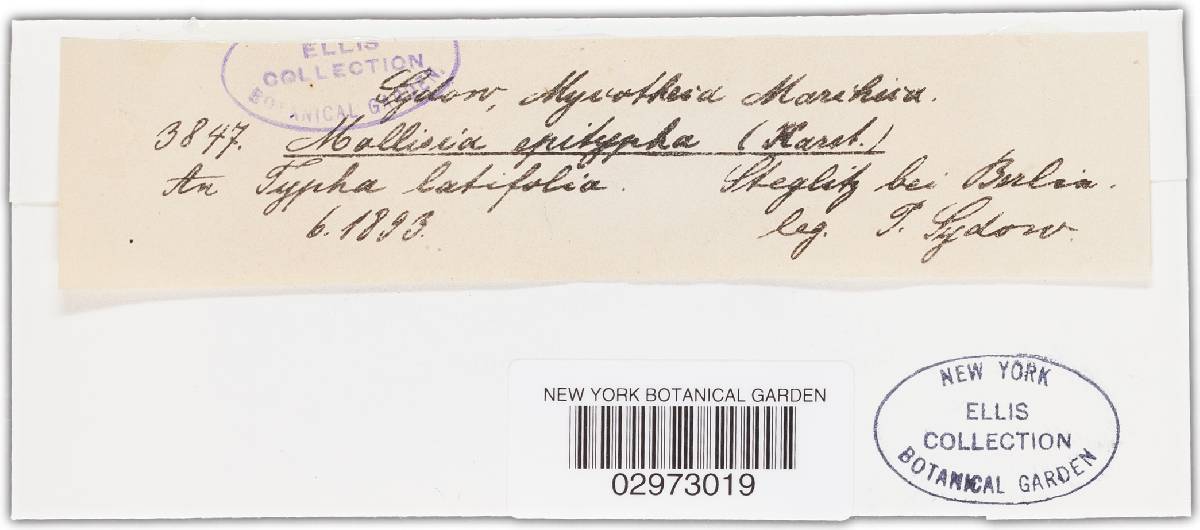 ELLIS
COLLECTION
BOTANICAL GARDEN
Sydow, Mycotheca Marchica.
3847. Mollisia epitypha (Karst.)
An Typha latifolia. Steglitz bei Berlin.
6.1893. leg. P. Sydow.
NEW YORK BOTANICAL GARDEN
02973019
NEW YORK
ELLIS
COLLECTION
BOTANICAL GARDEN